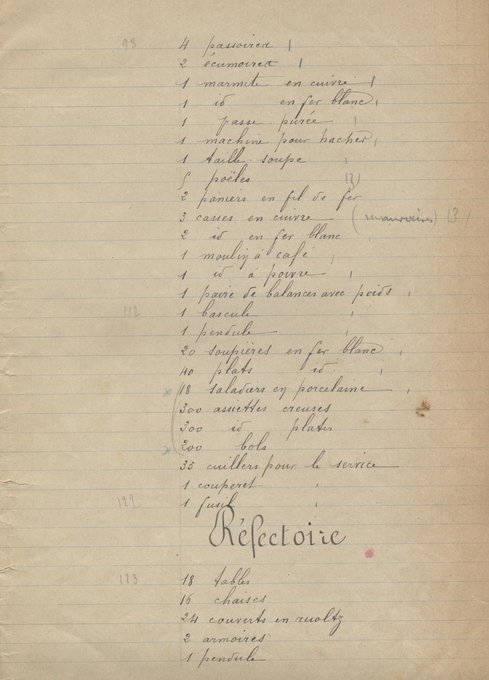 98 4 passoires |
2 écumoires |
1 marmite en cuivre |
1 id en fer blanc |
1 passe purée |
1 machine pour hacher |
1 taille soupe |
5 poëles (3)
2 paniers en fil de fer
3 casses en cuivre (mauvaises) (3)
2 id en fer blanc
1 moulin à café |
1 id à poivre |
1 paire de balances avec poids |
112 1 bascule |
1 pendule |
20 soupières en fer blanc |
40 plats id |
x 18 saladiers en porcelaine |
300 assettes creuses
300 id plates
x 200 bols
35 cuillers pour le service
1 couperet |
122 1 fusil |
Réfectoire
123 18 tables
16 chaises
24 couverts en ruoltz
2 armoires
1 pendule